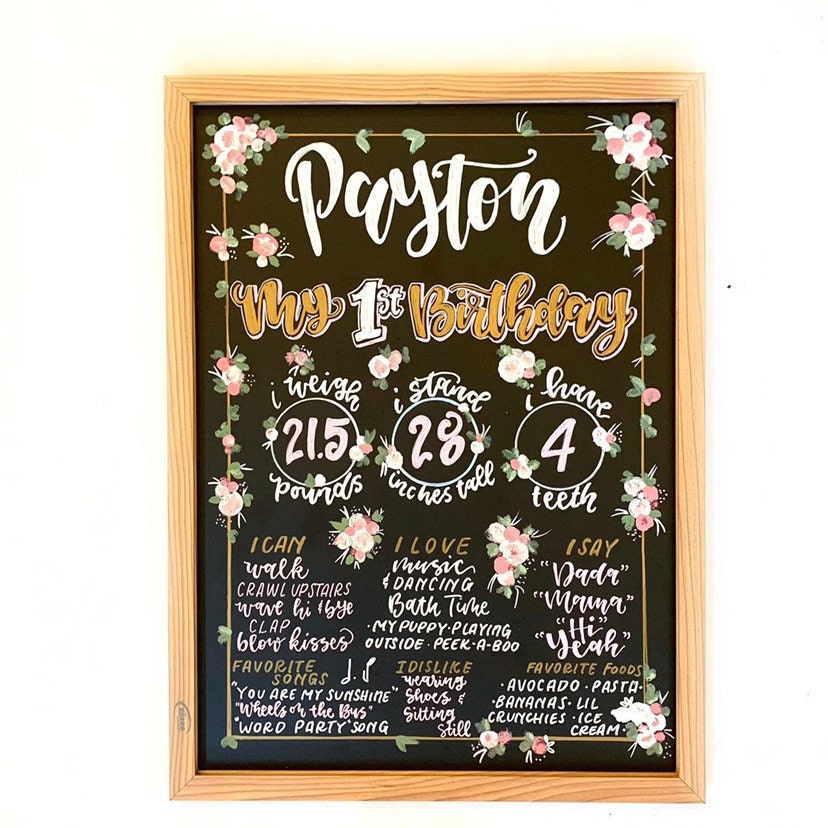 Payton
My 1st Birthday
i weigh
21.5
pounds
i stand
28
inches tall
i have
4
teeth
I CAN
walk
CRAWL UPSTAIRS
wave hi & bye
CLAP
blow kisses
I LOVE
music
& DANCING
Bath Time
·MY PUPPY·PLAYING
OUTSIDE·PEEK-A-BOO
I SAY
"Dada"
"Mama"
"Hi"
"Yeah"
FAVORITE
SONGS
"YOU ARE MY SUNSHINE"
"Wheels on the Bus"
"WORD PARTY" SONG
I DISLIKE
wearing
Shoes &
Sitting
Still
FAVORITE FOODS
·AVOCADO·PASTA·
·BANANAS·LIL
CRUNCHIES·ICE
CREAM·